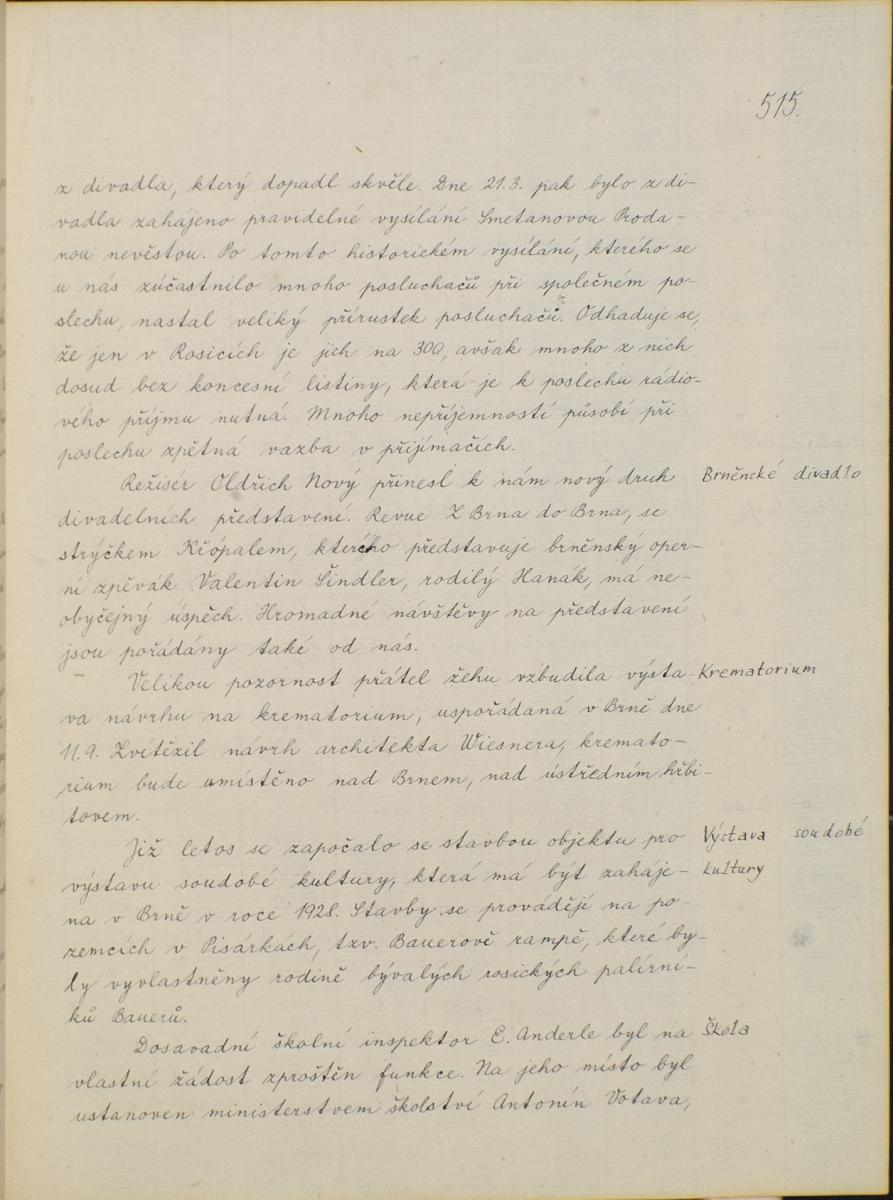 515.
z divadla, který dopadl skvěle. Dne 21.3. pak bylo z di-
vadla zahájeno pravidelné vysílání Smetanovou Proda-
nou nevěstou. Po tomto historickém vysílání, kterého se
u nás zúčastnilo mnoho posluchačů při společném po-
slechu, nastal veliký přírustek posluchačů. Odhaduje se,
že jen v Rosicích je jich na 300, avšak mnoho z nich
dosud bez koncesní listiny, která je k poslechu rádio-
vého příjmu nutná. Mnoho nepříjemností působí při
poslechu zpětná vazba v přijímačích.
Režisér Oldřich Nový přinesl k nám nový druh
Brněnské divadlo
divadelních představení. Revue Z Brna do Brna, se
strýčkem Křópalem, kterého představuje brněnský oper-
ní zpěvák Valentin Šindler, rodilý Hanák, má ne-
obyčejný úspěch. Hromadné návštěvy na představení
jsou pořádány také od nás.
Velikou pozornost přátel žehu vzbudila výsta-
Krematorium
va návrhu na krematorium, uspořádaná v Brně dne
11.9. Zvítězil návrh architekta Wiesnera, kremato-
rium bude umístěno nad Brnem, nad ústředním hřbi-
tovem.
Již letos se započalo se stavbou objektu pro
Výstava soudobé
výstavu soudobé kultury, která má být zaháje-
kultury
na v Brně v roce 1928. Stavby se provádějí na po-
zemcích v Pisárkách, tzv. Bauerově rampě, které by-
ly vyvlastněny rodině bývalých rosických palírní-
ků Bauerů.
Dosavadní školní inspektor E. Anderle byl na
Škola
vlastní žádost zproštěn funkce. Na jeho místo byl
ustanoven ministerstvem školství Antonín Votava,